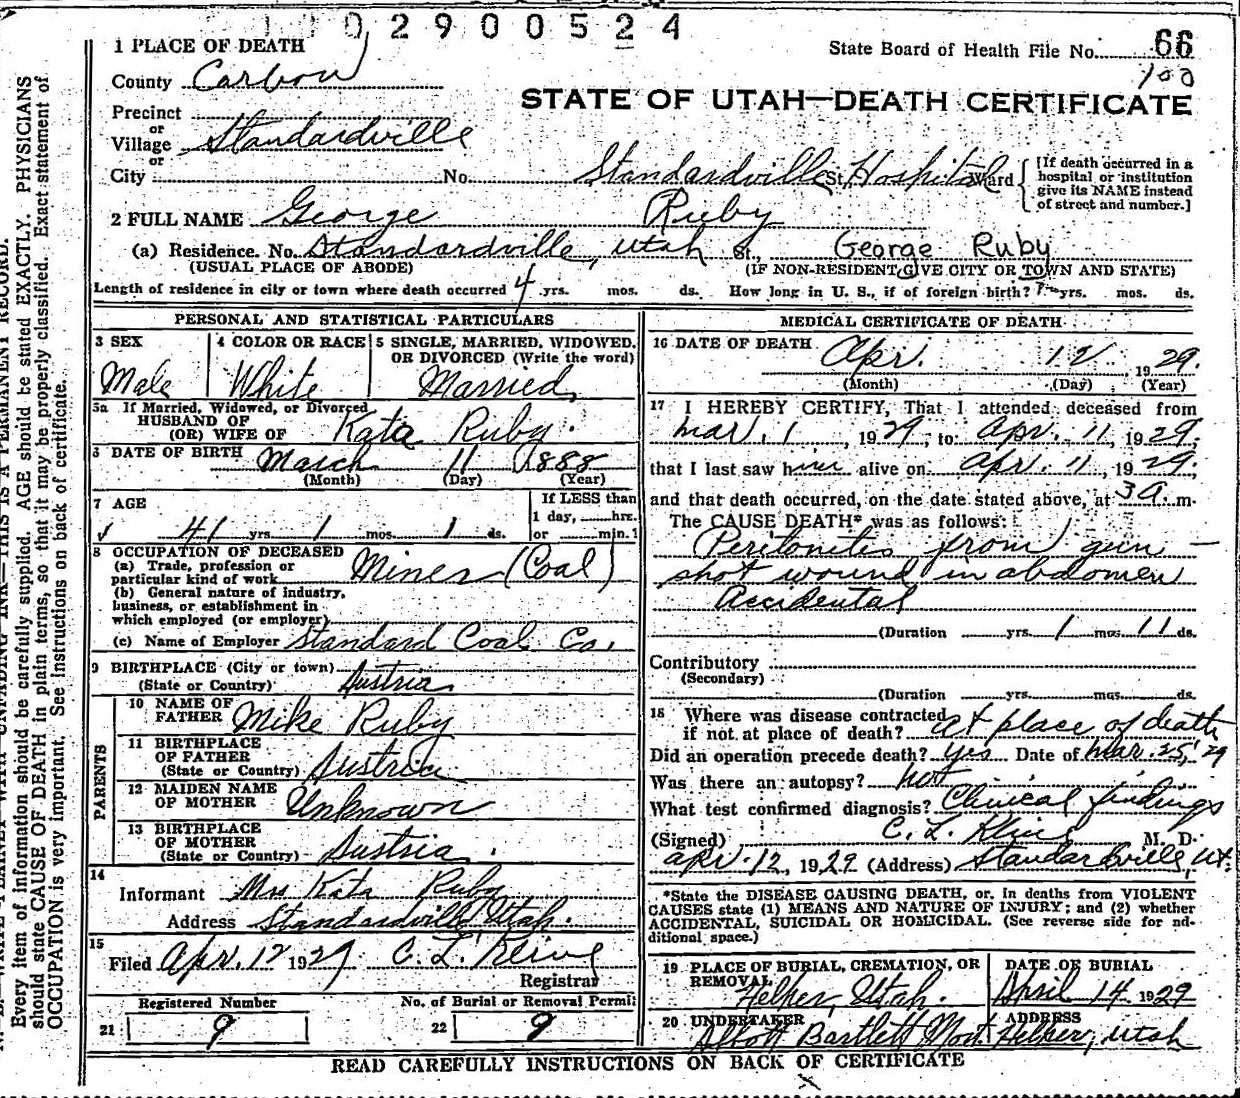 1 0 2 9 0 0 5 2 4
1 PLACE OF DEATH
State Board of Health File No. 66
100
County Carbon
STATE OF UTAH—DEATH CERTIFICATE
Precinct
or
Village Standardville
or
City No. Standardville St. Hospital Ward
[If death occurred in a
hospital or institution
give its NAME instead
of street and number.]
2 FULL NAME George Ruby
(a) Residence. No. Standardville, Utah St., George Ruby
(USUAL PLACE OF ABODE) (IF NON-RESIDENT GIVE CITY OR TOWN AND STATE)
Length of residence in city or town where death occurred 4 yrs. mos. ds. How long in U. S., if of foreign birth? yrs. mos. ds.
PERSONAL AND STATISTICAL PARTICULARS
3 SEX 4 COLOR OR RACE 5 SINGLE, MARRIED, WIDOWED,
OR DIVORCED (Write the word)
Male White Married
5a If Married, Widowed, or Divorced
HUSBAND OF
(OR) WIFE OF Kata Ruby.
6 DATE OF BIRTH March 11 1888
(Month) (Day) (Year)
7 AGE If LESS than
1 day, hrs.
41 yrs. 1 mos. 1 ds. or min.?
8 OCCUPATION OF DECEASED
(a) Trade, profession or
particular kind of work Miner (Coal)
(b) General nature of industry,
business, or establishment in
which employed (or employer)
(c) Name of Employer Standard Coal Co.
9 BIRTHPLACE (City or town)
(State or Country) Austria
PARENTS
10 NAME OF
FATHER Mike Ruby
11 BIRTHPLACE
OF FATHER
(State or Country) Austria
12 MAIDEN NAME
OF MOTHER Unknown
13 BIRTHPLACE
OF MOTHER
(State or Country) Austria.
14
Informant Mrs Kata Ruby
Address Standardville Utah.
15
Filed Apr. 12 1929 C. L. Kline
Registrar
Registered Number No. of Burial or Removal Permit
21 9 22 9
MEDICAL CERTIFICATE OF DEATH
16 DATE OF DEATH
Apr. 12 1929
(Month) (Day) (Year)
17 I HEREBY CERTIFY, That I attended deceased from
Mar. 1, 1929, to Apr. 11, 1929,
that I last saw him alive on Apr. 11, 1929,
and that death occurred, on the date stated above, at 3 a. m.
The CAUSE DEATH* was as follows:
Peritonites from gun-
shot wound in abdomen
Accidental
(Duration yrs. 1 mos. 11 ds.
Contributory
(Secondary)
(Duration yrs. mos. ds.
18 Where was disease contracted
if not at place of death? at place of death
Did an operation precede death? yes Date of Mar. 25, '29
Was there an autopsy? not
What test confirmed diagnosis? Clinical findings
(Signed) C. L. Kline M. D.
Apr. 12, 1929 (Address) Standardville, Ut.
*State the DISEASE CAUSING DEATH, or, in deaths from VIOLENT
CAUSES state (1) MEANS AND NATURE OF INJURY; and (2) whether
ACCIDENTAL, SUICIDAL OR HOMICIDAL. (See reverse side for ad-
ditional space.)
19 PLACE OF BURIAL, CREMATION, OR
REMOVAL
Helper, Utah.
DATE OF BURIAL
April 14 1929
20 UNDERTAKER ADDRESS
Abbott Bartlett Mort. Helper, Utah
READ CAREFULLY INSTRUCTIONS ON BACK OF CERTIFICATE
WRITE PLAINLY WITH UNFADING INK—THIS IS A PERMANENT RECORD.
Every item of information should be carefully supplied. AGE should be stated EXACTLY. PHYSICIANS
should state CAUSE OF DEATH in plain terms, so that it may be properly classified. Exact statement of
OCCUPATION is very important. See instructions on back of certificate.